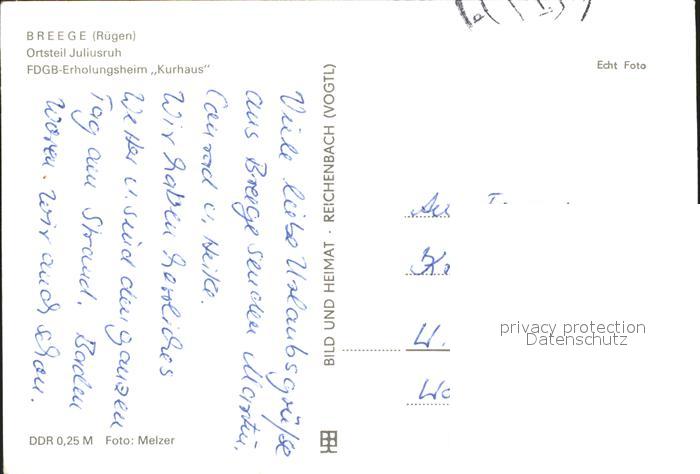 BREEGE (Rügen)
Ortsteil Juliusruh
FDGB-Erholungsheim „Kurhaus"
Echt Foto
Viele liebe Urlaubsgrüße
aus Breege senden Martin,
Conrad u. Heike.
Wir haben herrliches
Wetter u. sind den ganzen
Tag am Strand. Baden
waren wir auch schon.
BILD UND HEIMAT · REICHENBACH (VOGTL)
privacy protection
Datenschutz
DDR 0,25 M Foto: Melzer